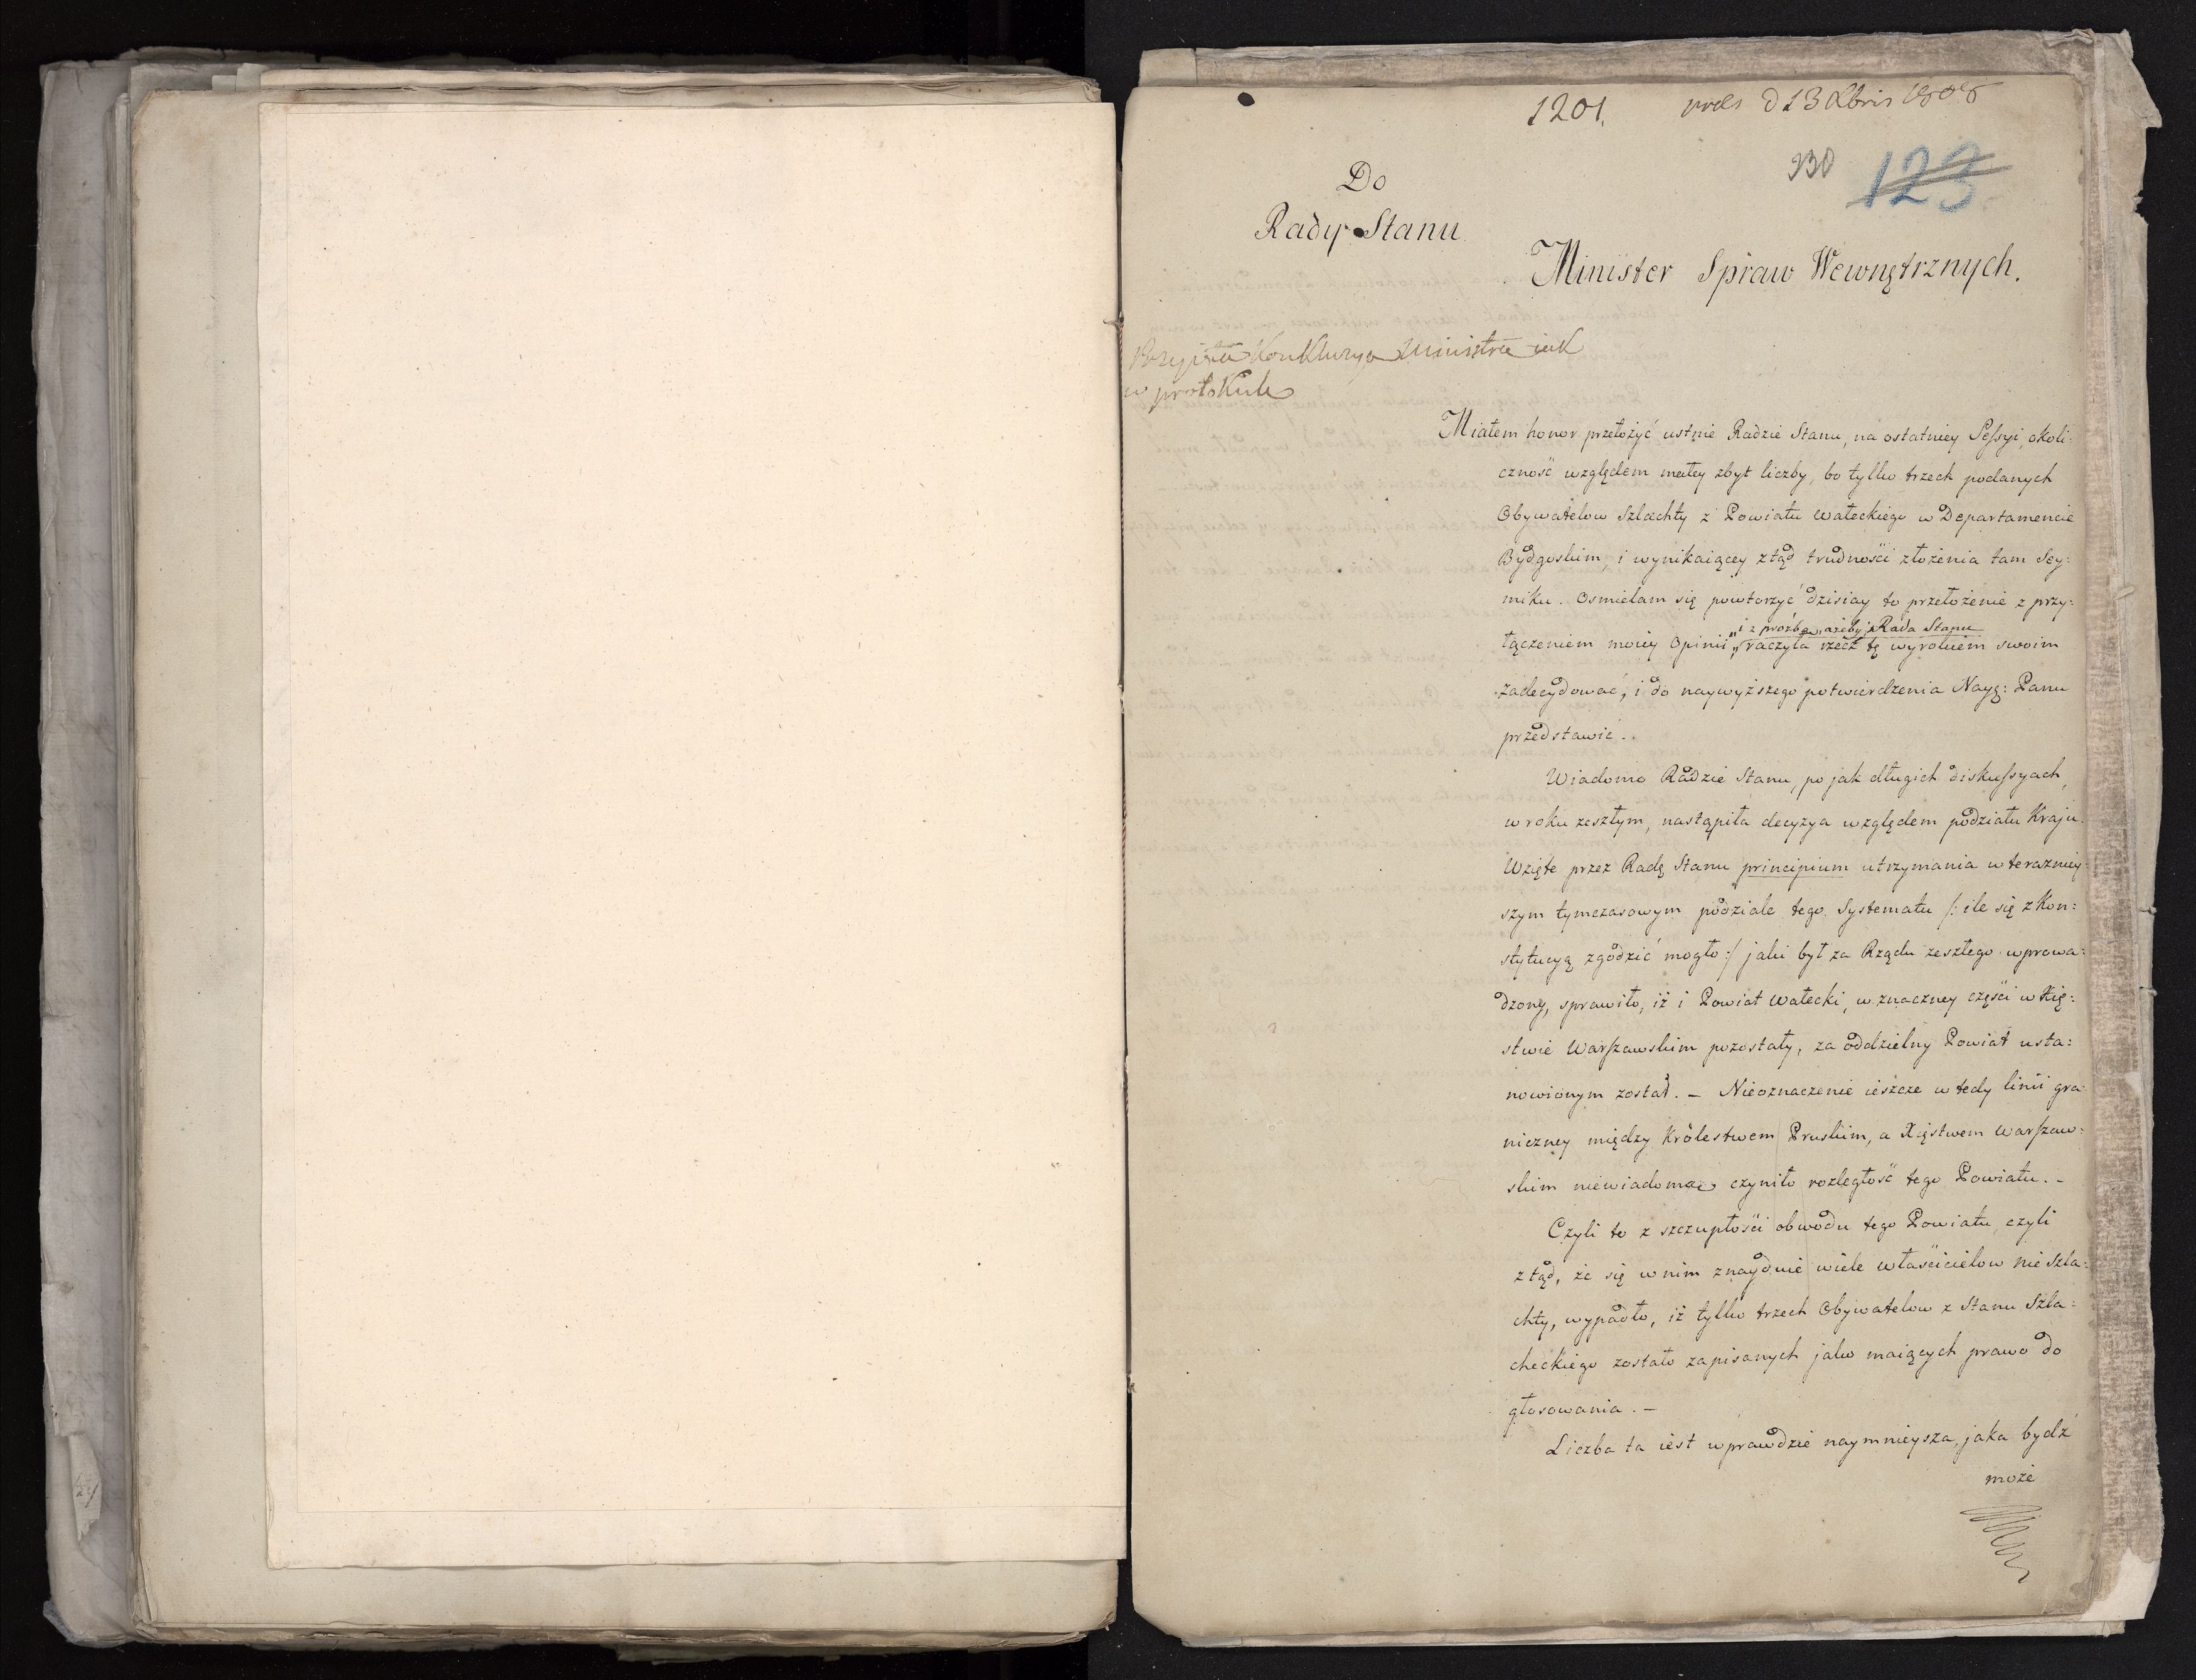 1201. d 13 Xbris 1808
330 123
Do
Rady Stanu
Minister Spraw Wewnętrznych.
Przyięta Konkluzya Ministra iak
w protokule
Miałem honor przełożyć ustnie Radzie Stanu, na ostatniey Seſsyi, okoli:
czność względem małey zbyt liczby, bo tylko trzech podanych
Obywatelow Szlachty z Powiatu Wałeckiego w Departamencie
Bydgoskim, i wynikaiącey ztąd trudności złożenia tam Sey:
miku. Osmielam się powtorzyć dzisiay to przełożenie z przy:
i z prozbą, ażeby Rada Stanu
łączeniem moiey Opinii, raczyła rzecz tę wyrokiem swoim
zadecydować, i do naywyższego potwierdzenia Nayę: Panu
przedstawić.
Wiadomo Radzie Stanu, po jak długich diskuſsyach,
w roku zeszłym, nastąpiła decyzya względem podziału Kraju.
Wzięte przez Radę Stanu principium utrzymania w teraźniey:
szym tymczasowym podziale tego Systematu /: ile się z Kon:
stytucyą zgodzić mogło :/ jaki był za Rządu zeszłego wprowa:
dzony, sprawiło, iż i Powiat Wałecki, w znaczney części w Xię:
stwie Warſzawskim pozostały, za oddzielny Powiat usta:
nowionym został. – Nieoznaczenie ieszcze wtedy linii gra:
niczney między Królestwem Pruskim, a Xięstwem Warſzaw:
skim niewiadomą czyniło rozległość tego Powiatu. –
Czyli to z szczupłości obwodu tego Powiatu, czyli
ztąd, że się w nim znayduie wiele właścicielow nie Szla:
chty, wypadło, iż tylko trzech Obywatelow z Stanu Szla:
checkiego zostało zapisanych jako maiących prawo do
głosowania. –
Liczba ta iest wprawdzie naymnieysza, jaka bydź
może